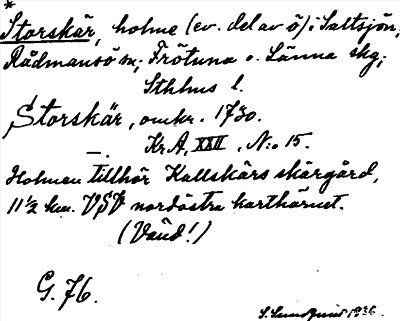 *
Storskär, holme (ev. del av ö) i Saltsjön,
Rådmansö sn; Frötuna o. Länna skg;
Sthlms l.
Storskär, omkr. 1730.
— . Kr.A, XXII, N:o 15.
Holmen tillhör Kallskärs skärgård,
11½ km. VSV nordöstra karthörnet.
(Vänd!)
G. 76.
S. 1936